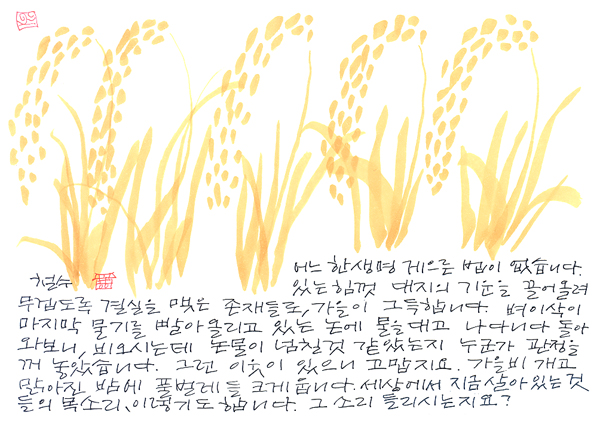 어느 한생명 게으른 법이 없습니다.
철수
있는힘껏 대지의 기운을 끌어올려
무겁도록 결실을 맺은 존재들로, 가을이 그득합니다. 벼이삭이
마지막 물기를 빨아올리고 있는 논에 물을대고 나다니다 돌아
와보니, 비오시는데 논물이 넘칠것 같았는지 누군가 판정을
꺼 놓았습니다. 그런 이웃이 있으니 고맙지요. 가을비 개고
맑아진 밤에 풀벌레들 크게 웁니다. 세상에서 지금살아있는것
들의 목소리, 이렇기도합니다. 그 소리 들리시는지요?